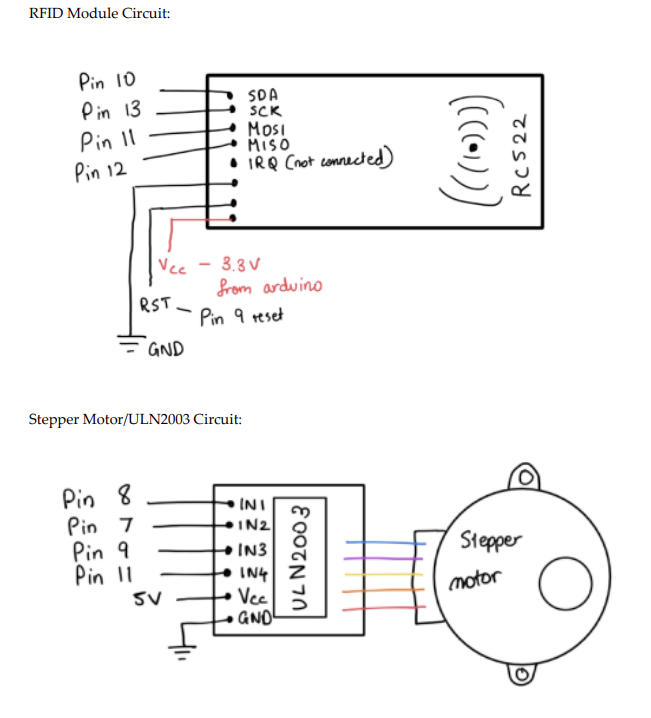 RFID Module Circuit:
Pin 10
Pin 13
Pin 11
Pin 12
SDA
SCK
MOSI
MISO
IRQ (not connected)
RC522
Vcc - 3.3V
from arduino
RST - Pin 9 reset
GND
Stepper Motor/ULN2003 Circuit:
Pin 8
Pin 7
Pin 9
Pin 11
5V
IN1
IN2
IN3
IN4
Vcc
GND
ULN2003
Stepper
motor